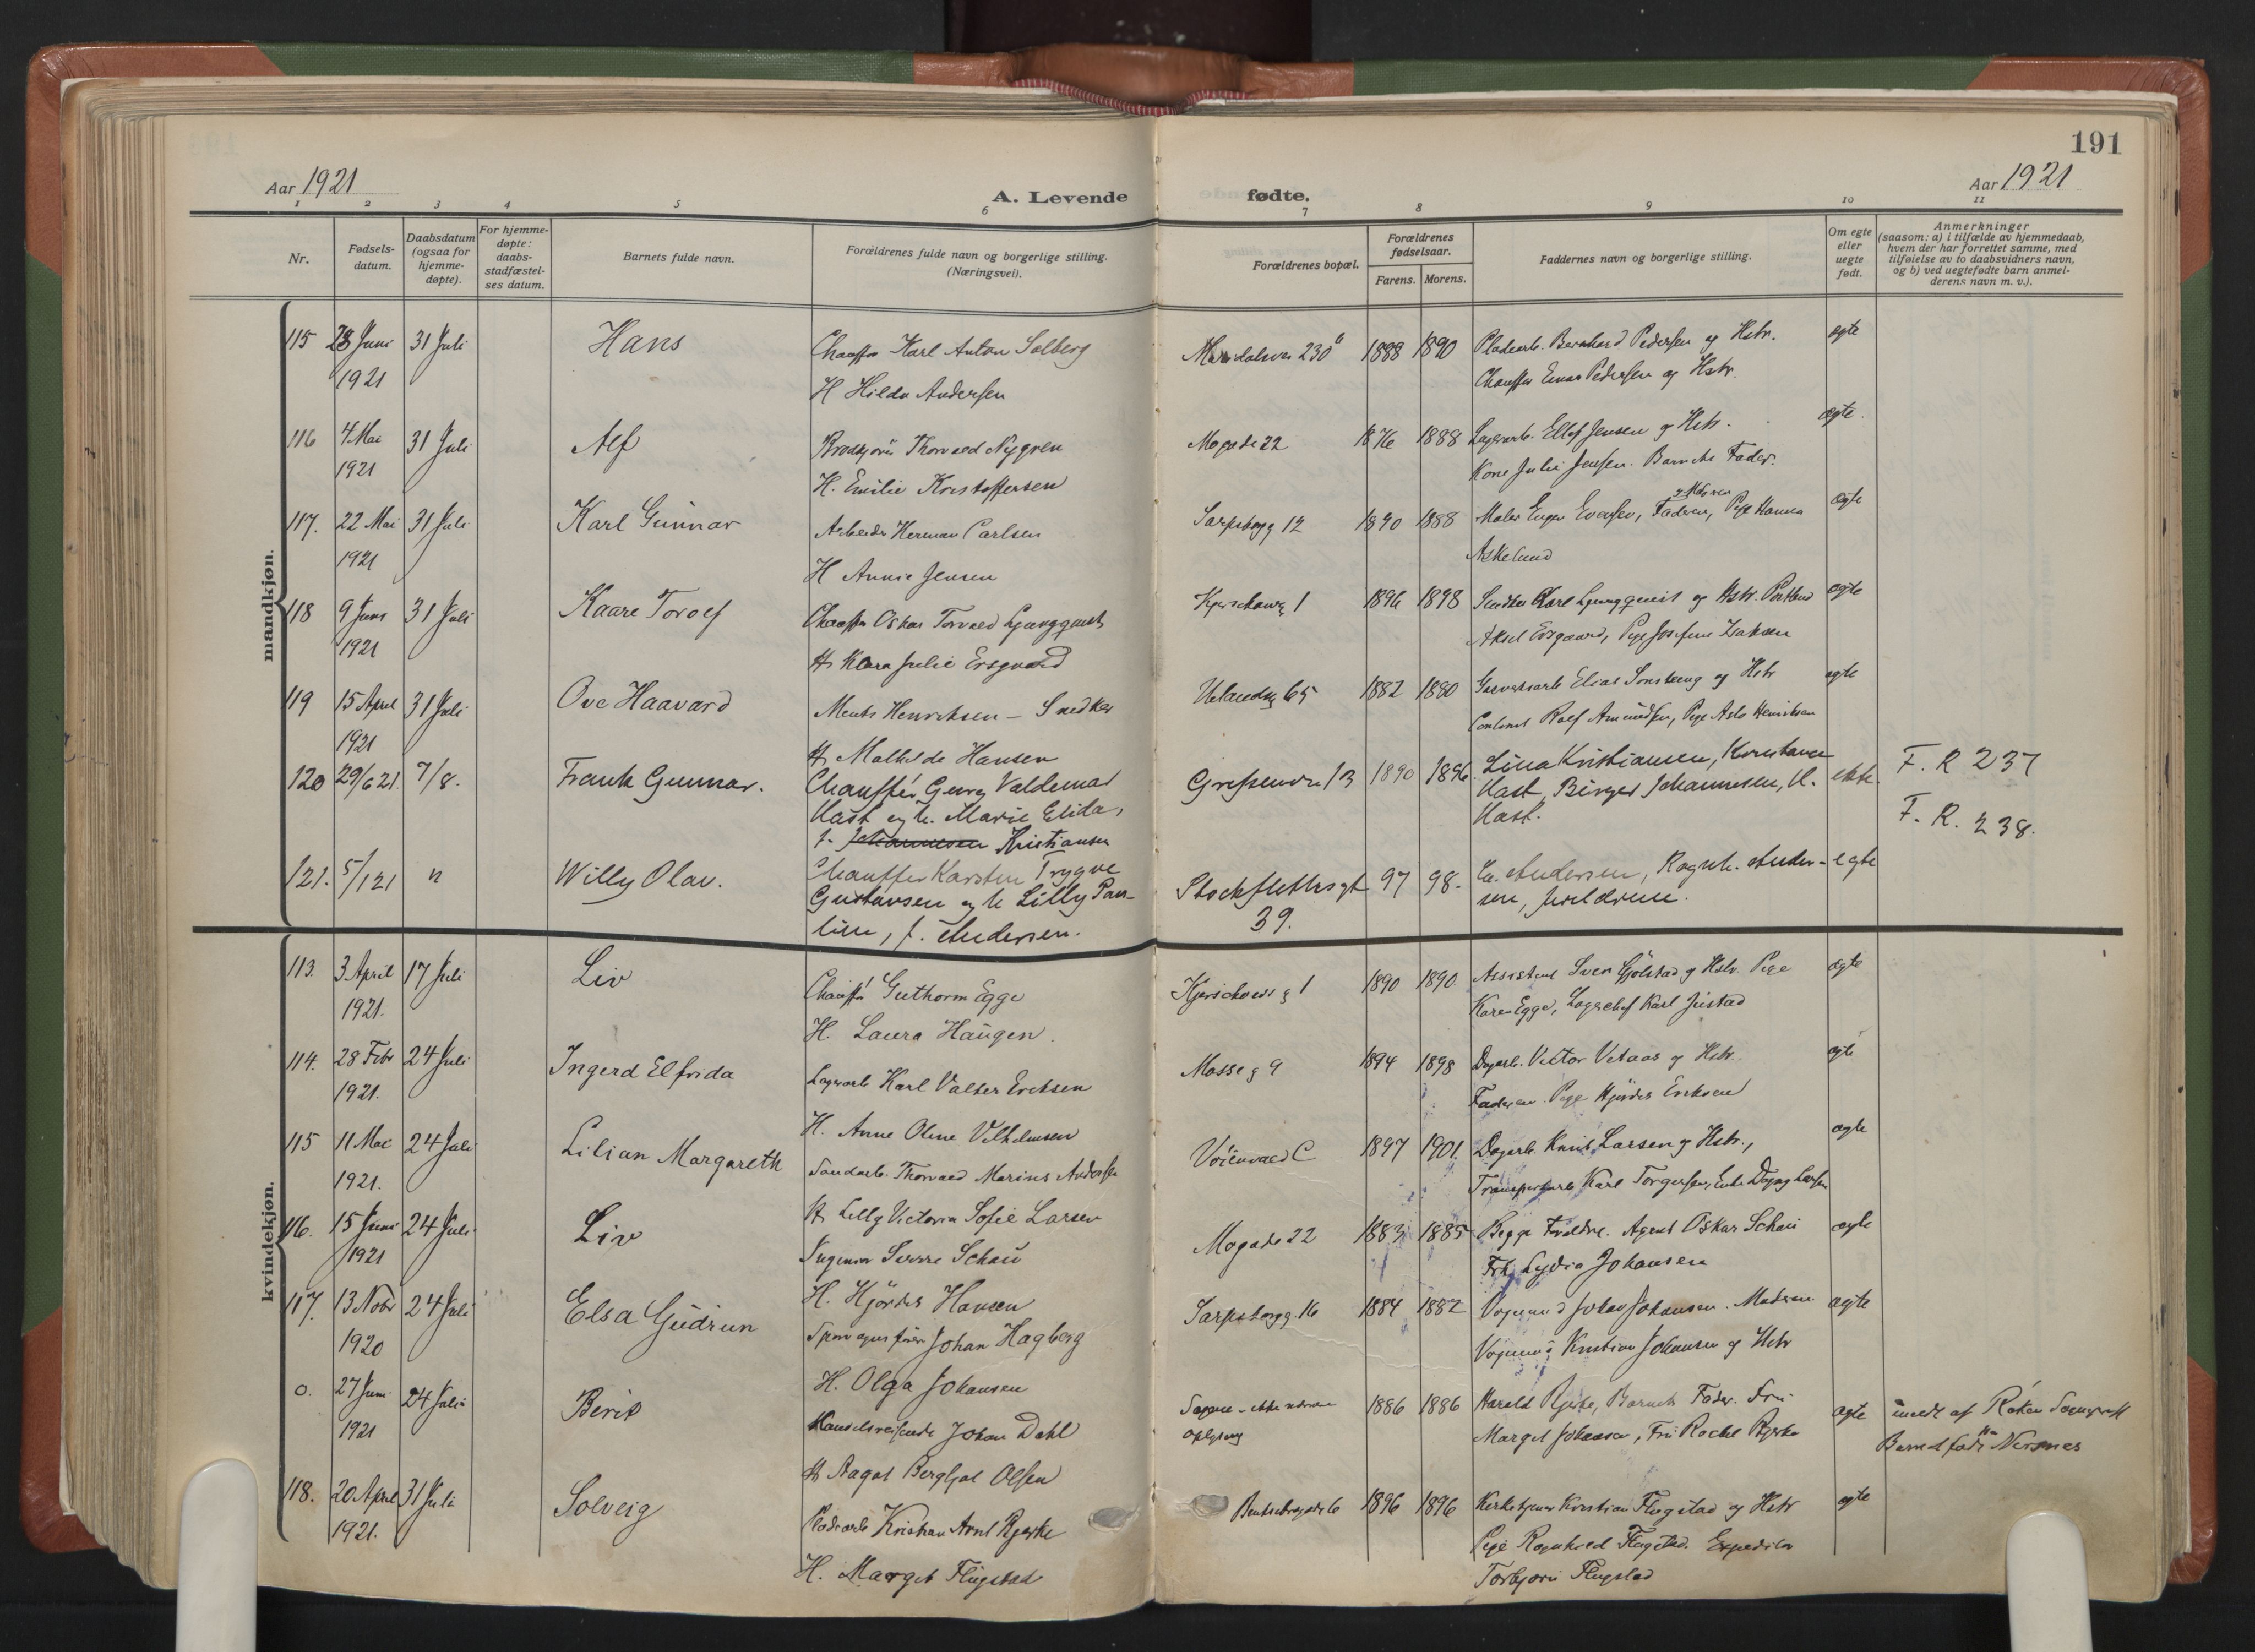 191
Aar 1921
A. Levende
fødte.
Aar 1921
1 2 3 4 5 6 7 8 9 10 11
Nr.
Fødsels-
datum.
Daabsdatum
(ogsaa for
hjemme-
døpte).
For hjemme-
døpte:
daabs-
stadfæstel-
ses datum.
Barnets fulde navn.
Forældrenes fulde navn og borgerlige stilling.
(Næringsvei).
Forældrenes bopæl.
Forældrenes
fødselsaar.
Farens. Morens.
Faddernes navn og borgerlige stilling.
Om egte
eller
uegte
født.
Anmerkninger
(saasom: a) i tilfælde av hjemmedaab,
hvem der har forrettet samme, med
tilføielse av to daabsvidners navn,
og b) ved uegtefødte barn anmel-
derens navn m. v.).
mandkjøn.
115 28 Juni 31 Juli Hans Chauffør Karl Anton Solberg 1888 1890 Pladearb. Bernhard Pedersen og Hstr. egte
1921 H Hilda Andersen Chauffør Einar Pedersen og Hstr.
116 4 Mai 31 Juli Alf Thorvald Nygren Mogade 22 1876 1888 Lagerarb. Ellef Jensen og Hstr. egte
1921 H. Emilie Kristoffersen Kone Julie Jensen. Barnets Fader.
117. 22 Mai 31 Juli Karl Gunnar Arbeider Herman Carlsen Sarpsborgg 12 1890 1888 Maler Evensen, Faderen, og Moderen Pige Hanna egte
1921 H Annie Jensen Askelund
118 9 Juni 31 Juli Kaare Torolf Chauffør Oskar Torvald Ljungquist Kjerschowsg 1 1896 1898 Karl Ljungquist og Hstr. egte
1921 H. Klara Julie Ersgaard Aksel Ersgaard, Pige Josefine Isaksen
119 15 April 31 Juli Ove Haavard Henriksen - Snedker Uelandsg 65 1882 1880 Elias og Hstr egte
1921 H. Mathilde Hansen Rolf Amundsen, Pige Aslo Henriksen
120 29/6 21. 7/8. Frank Gunnar. Chauffør Georg Valdemar Grefsenvn 13 1890 1896. Lina Kristiansen, Konstance ekte. F. R 237
Hast og h. Marie Elida, Hast, Birger Johannesen, H. F. R. 238.
f. Johannesen Kristiansen Hast.
121. 5/1 21 n Willy Olav. Chauffør Karsten Trygve Stockflethsgt 97 98. Andersen, Ragnh. Ander- egte
Gustavsen og h Lilly Pau- 39. sen, foreldrene.
line, f. Andersen.
kvindekjøn.
113. 3 April 17 Juli Liv Chauffør Guthorm Egge Kjerschowsg 1 1890 1890. Assistent Sven og Hstr. Pige egte
1921. H. Laura Haugen. Karen Egge, Lagerchef Karl Justad
114. 28 Febr 24 Juli Ingerd Elfrida Lagerarb Karl Valter Eriksen Mosseg 9 1894 1898 Dagarb. Victor Vetaas og Hstr. egte
1921. H. Anne Oline Vilhelmsen Faderen. Pige Hjørdis Eriksen
115 11 Mai 24 Juli Lilian Margareth Thorvald Marius Andersen Voienvold C 1897 1901. Dagarb. Knut Larsen og Hstr., egte
1921. H. Lilly Victoria Sofie Larsen Transportarb Karl Torgersen, Enke Dagny Larsen
116. 15 Juni 24 Juli Liv Ingeniør Sverre Schou Mogade 22 1883 1885 Begge Foreldre. Agent Oskar Schou egte
1921 H. Hjørdis Hansen Frk. Lydia Johansen
117. 13 Nobr 24 Juli Elsa Gudrun Sporvognsfører Johan Hagberg Sarpsborgg. 16 1884 1882 Vognmand Johan Johansen. Moderen egte
1920 H. Olga Johansen Vognmd Kristian Johansen og Hstr
0. 27 Juni 24 Juli Berit Handelsreisende Johan Dahl Sagene - ikke nærmere 1886 1886 Harald Bjerke, Barnets Fader. Fru egte meldt af Røken Sogneprest
1921 H. Aagot Bergljot Olsen oplysning Margit Johansen, Fru Rachel Bjerke Barnet født paa Nersnes
118. 20 April 31 Juli Solveig Pladearb Kristian Arnt Bjerke Bentsebrogade 6 1896 1896 Kirketjener Kristian Flugstad og Hstr egte
1921. H. Margit Flugstad Pige Ragnhild Flugstad. Expeditør
Torbjørn Flugstad